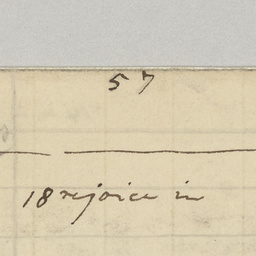 57
18 rejoice in